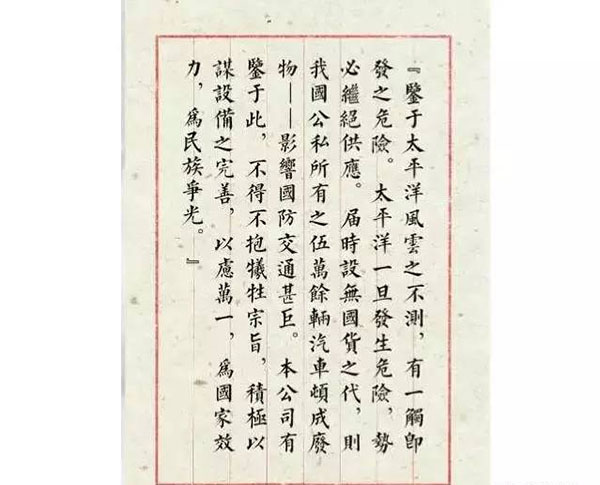 『鑒于太平洋風雲之不測，有一觸卽
發之危險。太平洋一旦發生危險，勢
必繼絕供應。届時設無國貨之代，則
我國公私所有之伍萬餘輛汽車頓成廢
物——影響國防交通甚巨。本公司有
鑒于此，不得不抱犧牲宗旨，積極以
謀設備之完善，以慮萬一，爲國家效
力，爲民族爭光。』